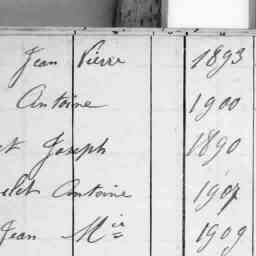 Jean Pierre 1893
Antoine 1900
Joseph 1890
Antoine 1907
Jean Mie 1909